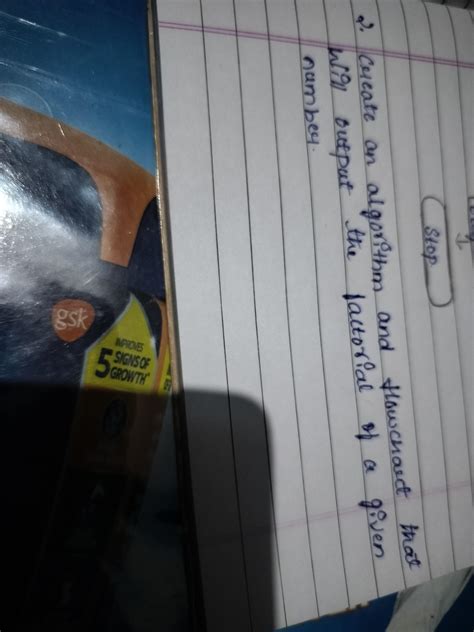 Stop
2. Create an algorithm and flowchart that
will output the factorial of a given
number.
gsk
IMPROVES
5 SIGNS OF
GROWTH